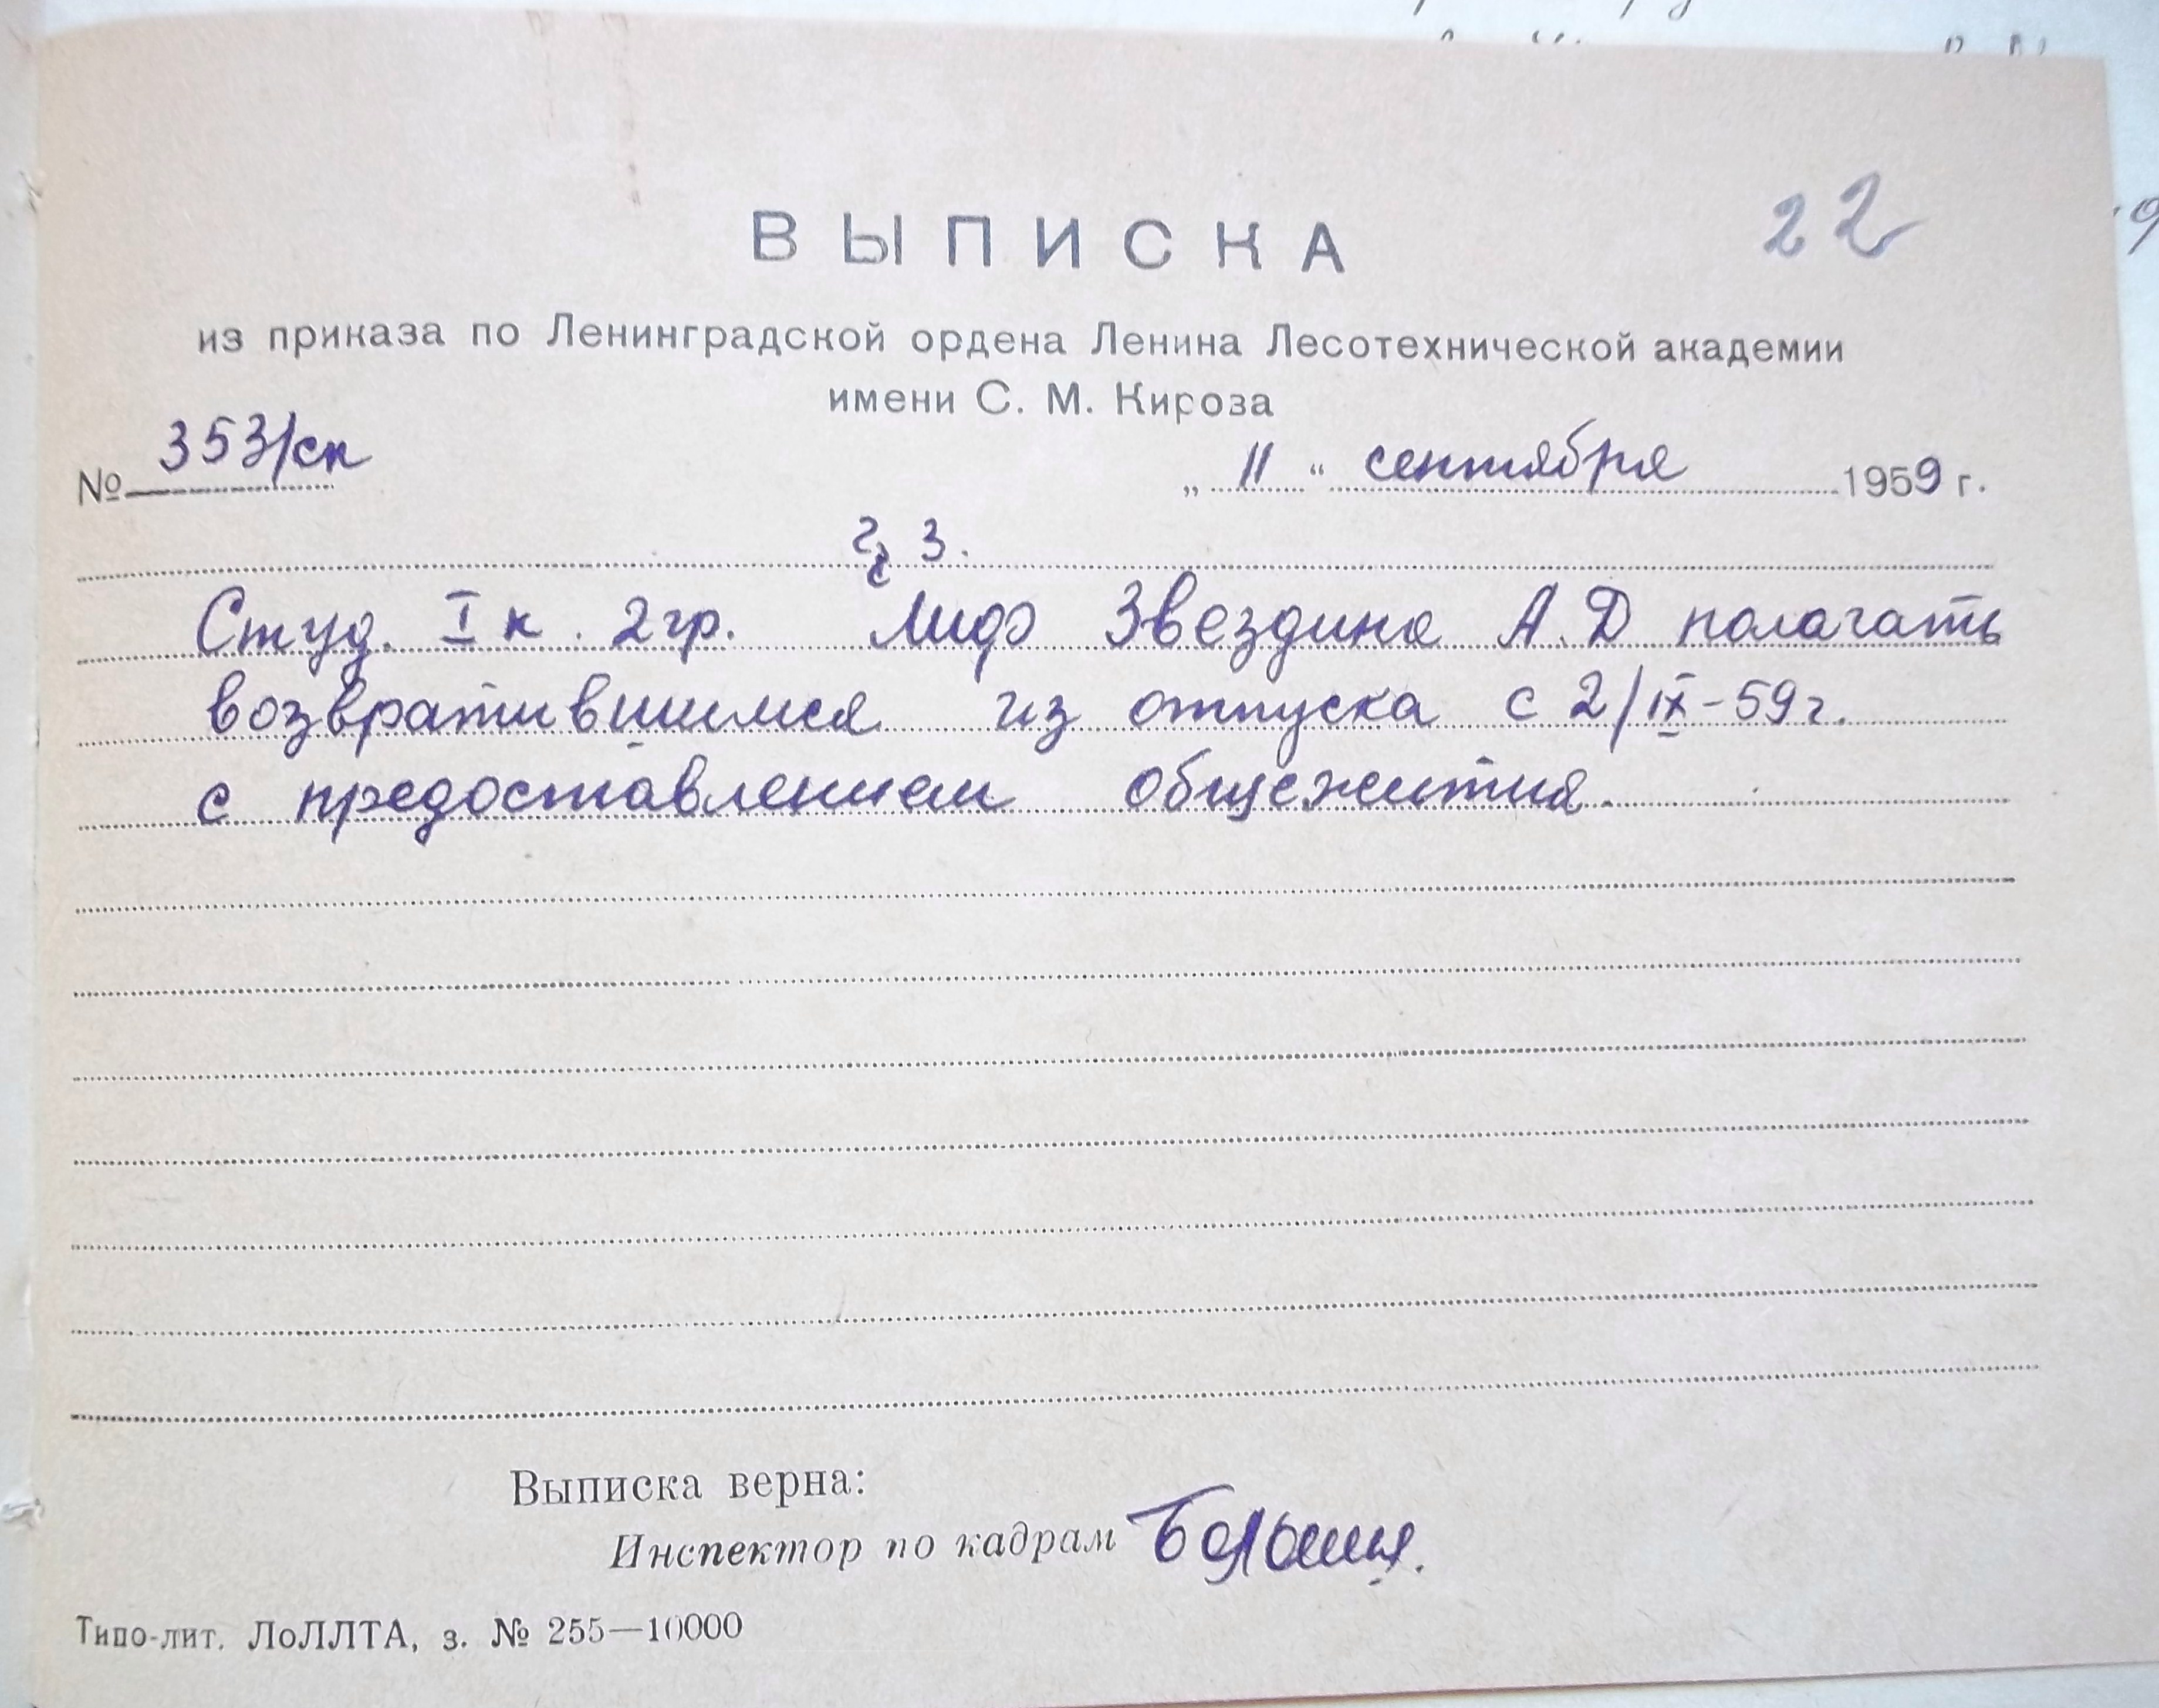 22
ВЫПИСКА
из приказа по Ленинградской ордена Ленина Лесотехнической академии
имени С. М. Кироза
№ 353/ск „ 11 “ сентября 1959 г.
§ 3.
Студ. I к. 2 гр. Звездина А. Д полагать
возвратившимся из отпуска с 2/IX-59 г.
с предоставлением общежития.
Выписка верна:
Инспектор по кадрам
Типо-лит. ЛоЛЛТА, з. № 255—10000